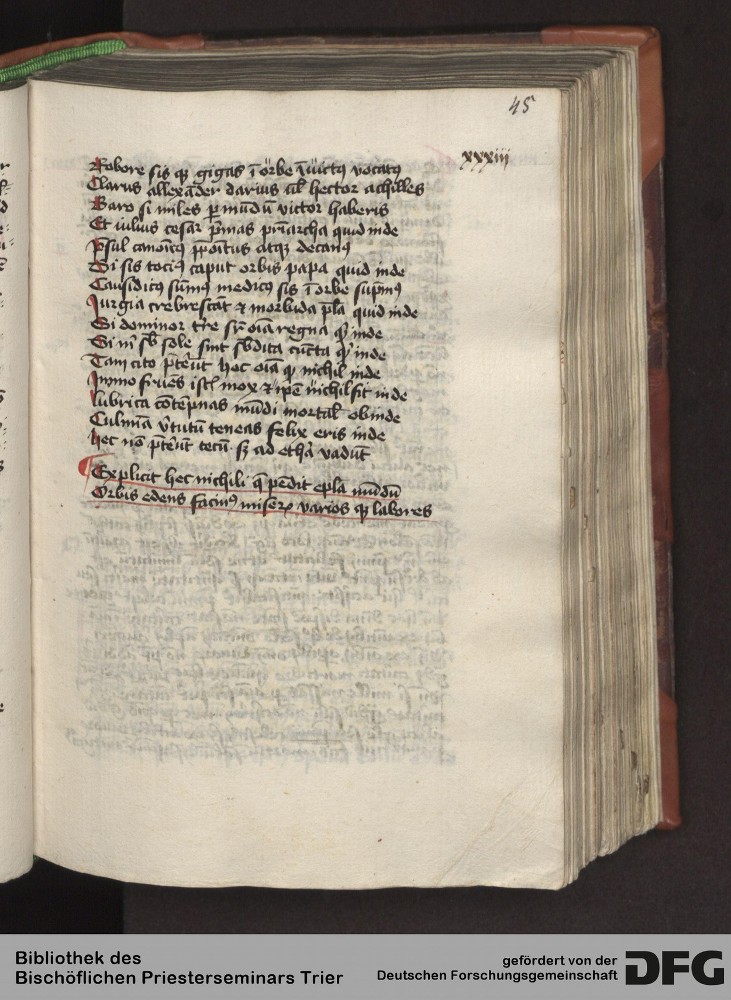 45
xxxiij
Robore sis qͣ gigas ī orbe q̄ uictꝰ vocatꝰ
Clarus allexāder darius uł hector achilles
Baro si miles p mūdū victor haberis
Et iulius cesar p̄mas p̄riarcha quid inde
P̄sul canoīcꝰ p̄poītus atqꝫ decanꝰ
Si sis tociꝰ caput orbis papa quid inde
Causidicꝰ sūmꝰ medicꝰ sis ī orbe sup̄mꝰ
Iurgia crebrescāt ⁊ morbida p̄la quid inde
Si dominor tr̄e sr̄ oīa regna qͥ inde
Si m̄ sb̄ sole sint sb̄dita cūcta qͥ inde
Tam cito p̄t̄eūt hec oīa qͣ nichil inde
Immo frueris mox ⁊ ip̄e nichil fit inde
lubrica cōtēpnas mūdi mortał ob inde
Culmīa v̄tutū teneas felix eris inde
hec nō p̄t̄eūt tecū sꝫ ad ethͣa vadūt
Explicit hec nichili q̄ pēdit epl̄a mūdū
Orbis edens faciūs miserꝝ varios qꝫ labores
Bibliothek des
Bischöflichen Priesterseminars Trier
gefördert von der
Deutschen Forschungsgemeinschaft
DFG